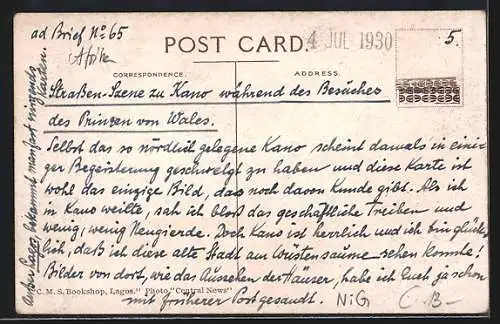 ad Brief No 65
Afrika
POST CARD.
4 JUL 1930
5.
CORRESPONDENCE.
ADDRESS.
Straßen-Szene zu Kano während des Besuches
des Prinzen von Wales.
Selbst das so nördlich gelegene Kano scheint damals in eini-
ger Begeisterung geschwelgt zu haben und diese Karte ist
wohl das einzige Bild, das noch davon Kunde gibt. Als ich
in Kano weilte, sah ich bloß das geschäftliche Treiben und
wenig, wenig Neugierde. Doch Kano ist herrlich und ich bin glück-
lich, daß ich diese alte Stadt am Wüstensaume sehen konnte!
Bilder von dort, wie das Aussehen der Häuser, habe ich Euch ja schon
mit früherer Post gesandt.
NiG
C B-
"C. M. S. Bookshop, Lagos." Photo "Central News"
Außer Lagos bekommt man fast nirgends
Karten.